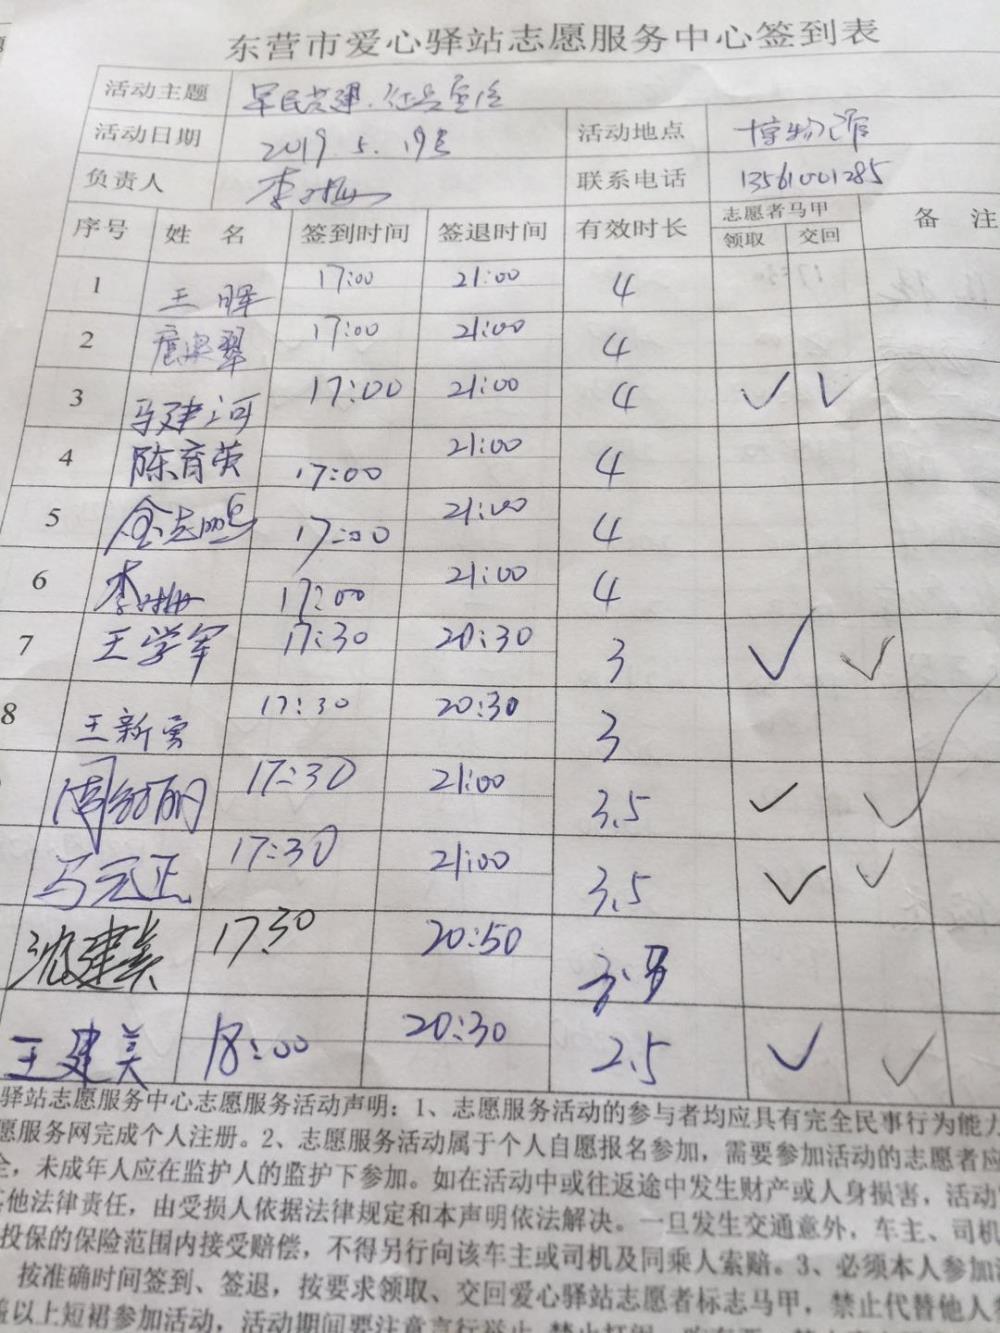 东营市爱心驿站志愿服务中心签到表
活动主题 军民共建.征兵宣传
活动日期 2019.5.19号 活动地点 博物馆
负责人 李 联系电话 13561001285
序号 姓名 签到时间 签退时间 有效时长 志愿者马甲 备注
领取 交回
1 王晖 17:00 21:00 4
2 17:00 21:00 4
3 马建河 17:00 21:00 4 ✓ ✓
4 陈育英 17:00 21:00 4
5 金志鸣 17:00 21:00 4
6 李 17:00 21:00 4
7 王学军 17:30 20:30 3 ✓ ✓
8 王新勇 17:30 20:30 3
周 17:30 21:00 3.5 ✓ ✓
马元正 17:30 21:00 3.5 ✓ ✓
沈建美 17:30 20:50
王建美 18:00 20:30 2.5 ✓ ✓
驿站志愿服务中心志愿服务活动声明：1、志愿服务活动的参与者均应具有完全民事行为能力
愿服务网完成个人注册。2、志愿服务活动属于个人自愿报名参加，需要参加活动的志愿者应
全，未成年人应在监护人的监护下参加。如在活动中或往返途中发生财产或人身损害，活动
其他法律责任，由受损人依据法律规定和本声明依法解决。一旦发生交通意外，车主、司机
投保的保险范围内接受赔偿，不得另行向该车主或司机及同乘人索赔。3、必须本人参加
按准确时间签到、签退，按要求领取、交回爱心驿站志愿者标志马甲，禁止代替他人
盖以上短裙参加活动，活动期间要注意言行举止